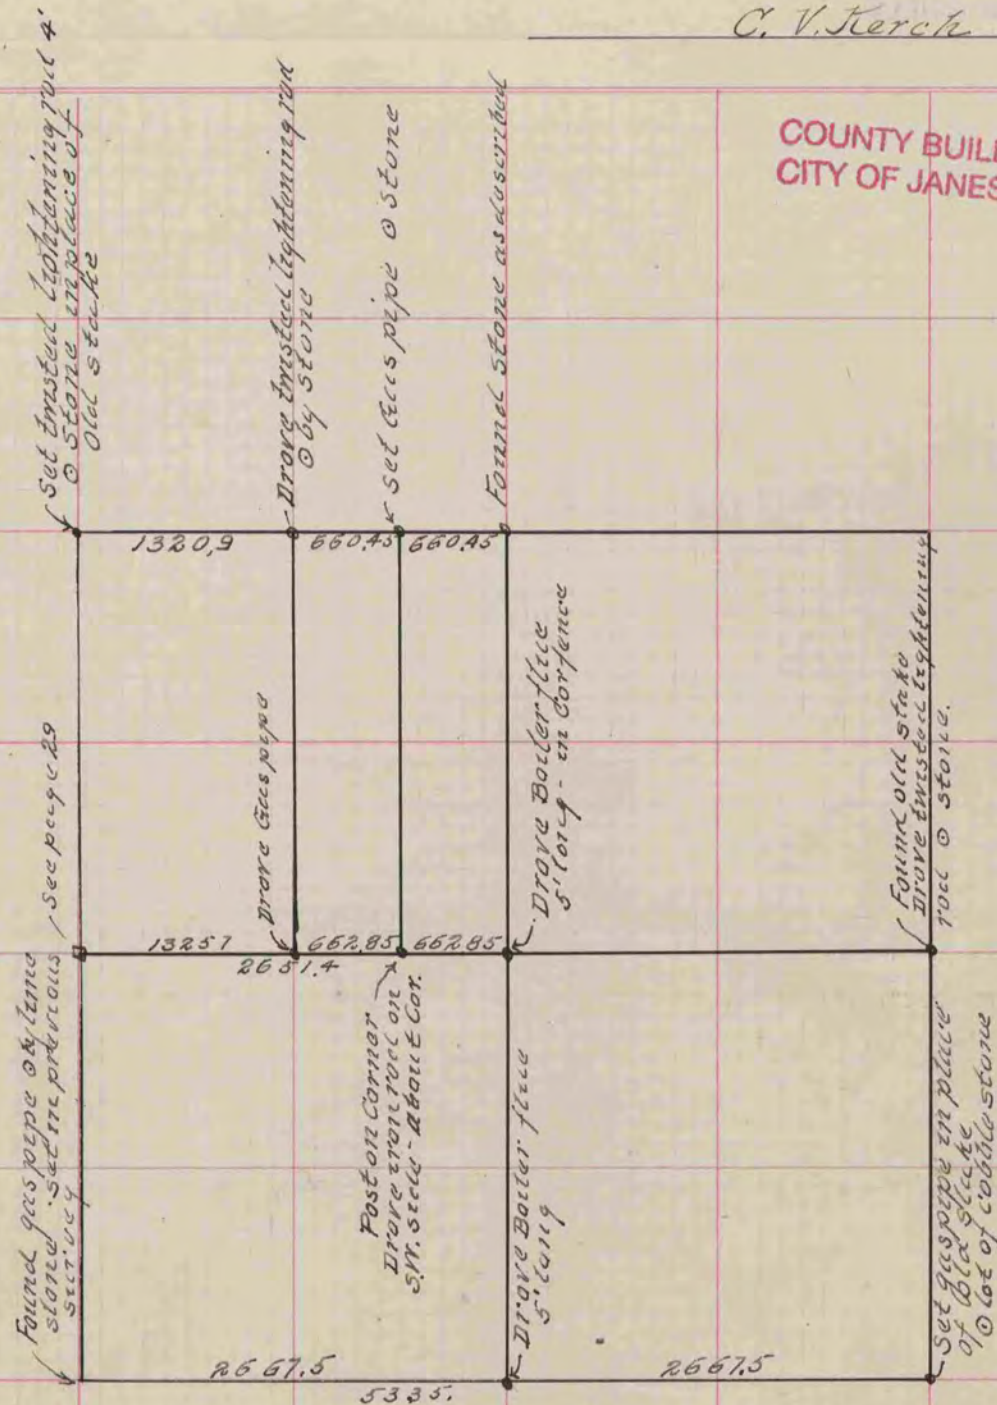 C. V. Kerch
COUNTY BUIL
CITY OF JANES
Set twisted lightening rod 4'
⊙ Stone in place of
Old stake
Drove twisted lightening rod
⊙ by stone
set Gas pipe ⊙ stone
Found stone as described
1320,9
660.45
660.45
Drove Boiler flue
5' long - in Cor fence
Found old stake
Drove twisted lightening
rod ⊙ stone.
see page 29
Drove Gas pipe
1325 7
662.85
662.85
2651.4
Found gas pipe ⊙ by lime
stone set in previous
survey
Post on Corner
Drove iron rod on
S.W. side - about Cor.
Drove Boiler flue
5' long
Set gas pipe in place
of Old stake
⊙ lot of cobble stone
2667.5
2667.5
5335.